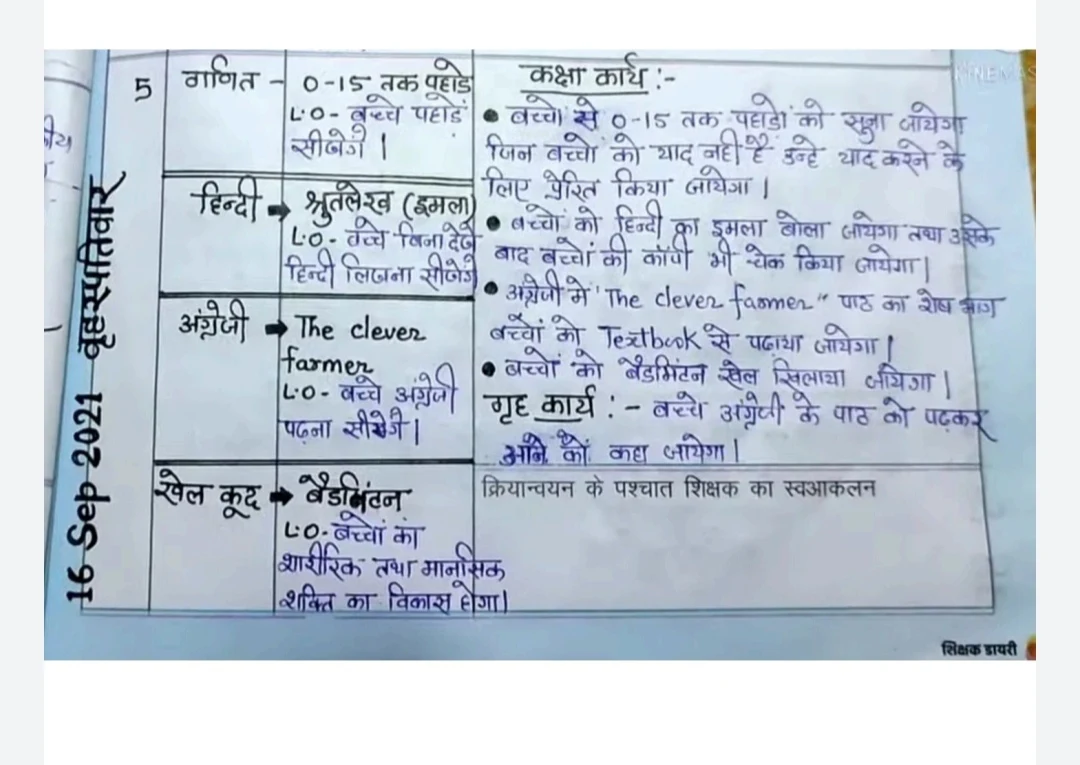 16 Sep 2021 वृहस्पतिवार
5
गणित - 0-15 तक पहाडे
L.O- बच्चे पहाडे
सीखेगें ।
हिन्दी → श्रुतलेख (इमला)
L.O- बच्चे बिना देखे
हिन्दी लिखना सीखेगें
अंग्रेजी → The clever
farmer
L.O- बच्चे अंग्रेजी
पढ़ना सीखेगें ।
खेल कूद → बैडमिंटन
L.O- बच्चों का
शारीरिक तथा मानसिक
शक्ति का विकास होगा।
कक्षा कार्य :-
• बच्चों से 0-15 तक पहाडों को सुना जायेगा
जिन बच्चों को याद नही है उन्हे याद करने के
लिए प्रेरित किया जायेगा ।
• बच्चों को हिन्दी का इमला बोला जायेगा तथा उसके
बाद बच्चों की कॉपी भी चेक किया जायेगा ।
• अंग्रेजी मे "The clever farmer" पाठ का शेष भाग
बच्चों को Textbook से पढाया जायेगा ।
• बच्चों को बैडमिंटन खेल खिलाया जायेगा ।
गृह कार्य :- बच्चे अंग्रेजी के पाठ को पढ़कर
आने को कहा जायेगा ।
क्रियान्वयन के पश्चात शिक्षक का स्वआकलन
शिक्षक डायरी